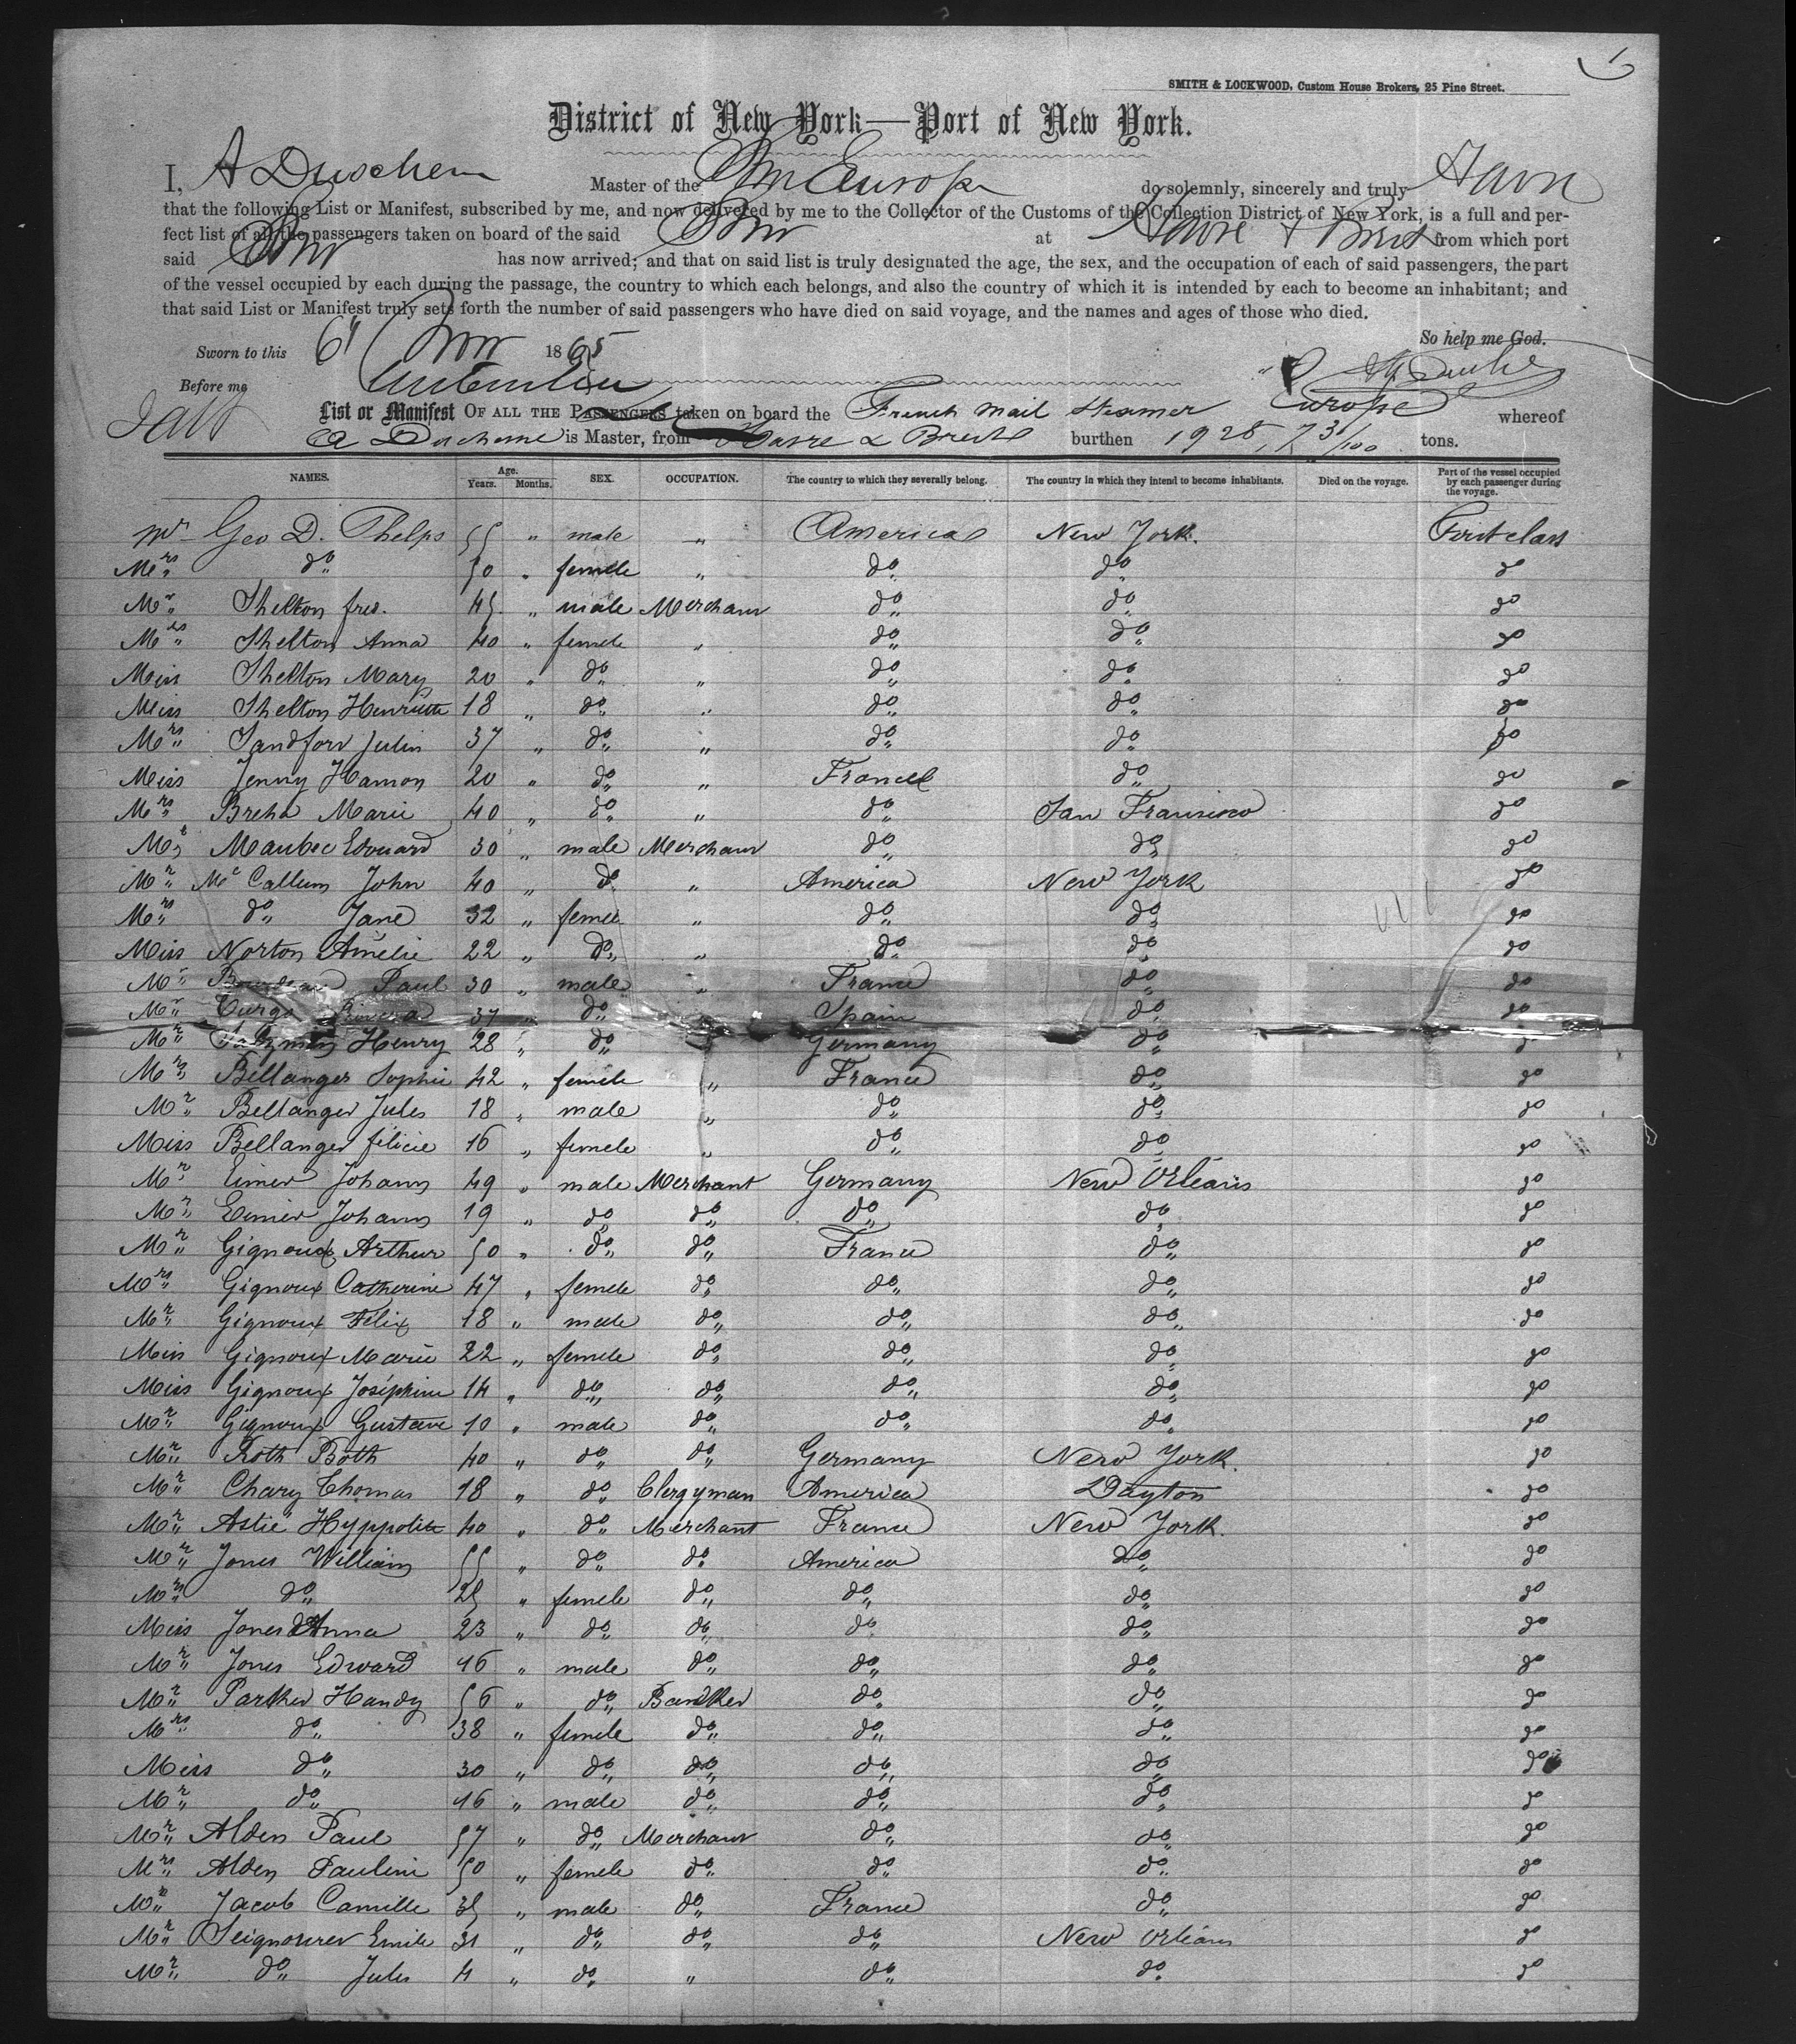 SMITH & LOCKWOOD, Custom House Brokers, 25 Pine Street.
District of New York—Port of New York.
I, A Duschem Master of the Europe do solemnly, sincerely and truly
that the following List or Manifest, subscribed by me, and now delivered by me to the Collector of the Customs of the Collection District of New York, is a full and per-
fect list of all the passengers taken on board of the said Stmr at Havre & Brest from which port
said Stmr has now arrived; and that on said list is truly designated the age, the sex, and the occupation of each of said passengers, the part
of the vessel occupied by each during the passage, the country to which each belongs, and also the country of which it is intended by each to become an inhabitant; and
that said List or Manifest truly sets forth the number of said passengers who have died on said voyage, and the names and ages of those who died.
So help me God.
Sworn to this 6" Nov 1865
Before me
List or Manifest OF ALL THE PASSENGERS taken on board the French Mail Steamer Europe whereof
A Duchesne is Master, from Havre & Brest burthen 1925,73/100 tons.
NAMES. Age. Years. Months. SEX. OCCUPATION. The country to which they severally belong. The country in which they intend to become inhabitants. Died on the voyage. Part of the vessel occupied by each passenger during the voyage.
Mr Geo D. Phelps 55 " male " America New York. First class
Mrs do 50 " female " do do do
Mr Shelton fred. 45 " male Merchant do do do
Mrs Shelton Anna 40 " female " do do do
Miss Shelton Mary 20 " do " do do do
Miss Shelton Henriette 18 " do " do do do
Mrs Sandford Julia 37 " do " do do do
Miss Jenny Hamon 20 " do " France do do
Mrs Breha Marie 40 " do " do San Francisco do
Mr Maubec Edouard 30 " male Merchant do do do
Mr Mc Callum John 40 " do " America New York do
Mrs do Jane 32 " female " do do do
Miss Norton Amélie 22 " do " do do do
Mr Paul 30 " male " France do do
Mr Rivera 37 " do Spain do do
Mr Henry 28 " do Germany do do
Mrs Bellanger Sophie 42 " female " France do do
Mr Bellanger Jules 18 " male " do do do
Miss Bellanger félicie 16 " female " do do do
Mr Eimer Johann 49 " male Merchant Germany New Orléans do
Mr Eimer Johann 19 " do do do do do
Mr Gignoux Arthur 50 " do do France do do
Mrs Gignoux Catherine 47 " female do do do do
Mr Gignoux Félix 18 " male do do do do
Miss Gignoux Marie 22 " female do do do do
Miss Gignoux Joséphine 14 " do do do do do
Mr Gignoux Gustave 10 " male do do do do
Mr Roth Both 40 " do do Germany New York. do
Mr Chary Thomas 18 " do Clergyman America Dayton do
Mr Astié Hyppolite 40 " do Merchant France New York. do
Mr Jones William 55 " do do America do do
Mrs do 25 " female do do do do
Miss Jones Anna 23 " do do do do do
Mr Jones Edward 16 " male do do do do
Mr Parker Handy 56 " do Banker do do do
Mrs do 38 " female do do do do
Miss do 30 " do do do do do
Mr do 16 " male do do do do
Mr Alden Paul 57 " do Merchant do do do
Mrs Alden Pauline 50 " female do do do do
Mr Jacob Camille 35 " male do France do do
Mr Seignouret Emile 31 " do do do New Orléans do
Mr do Jules 4 " do " do do do